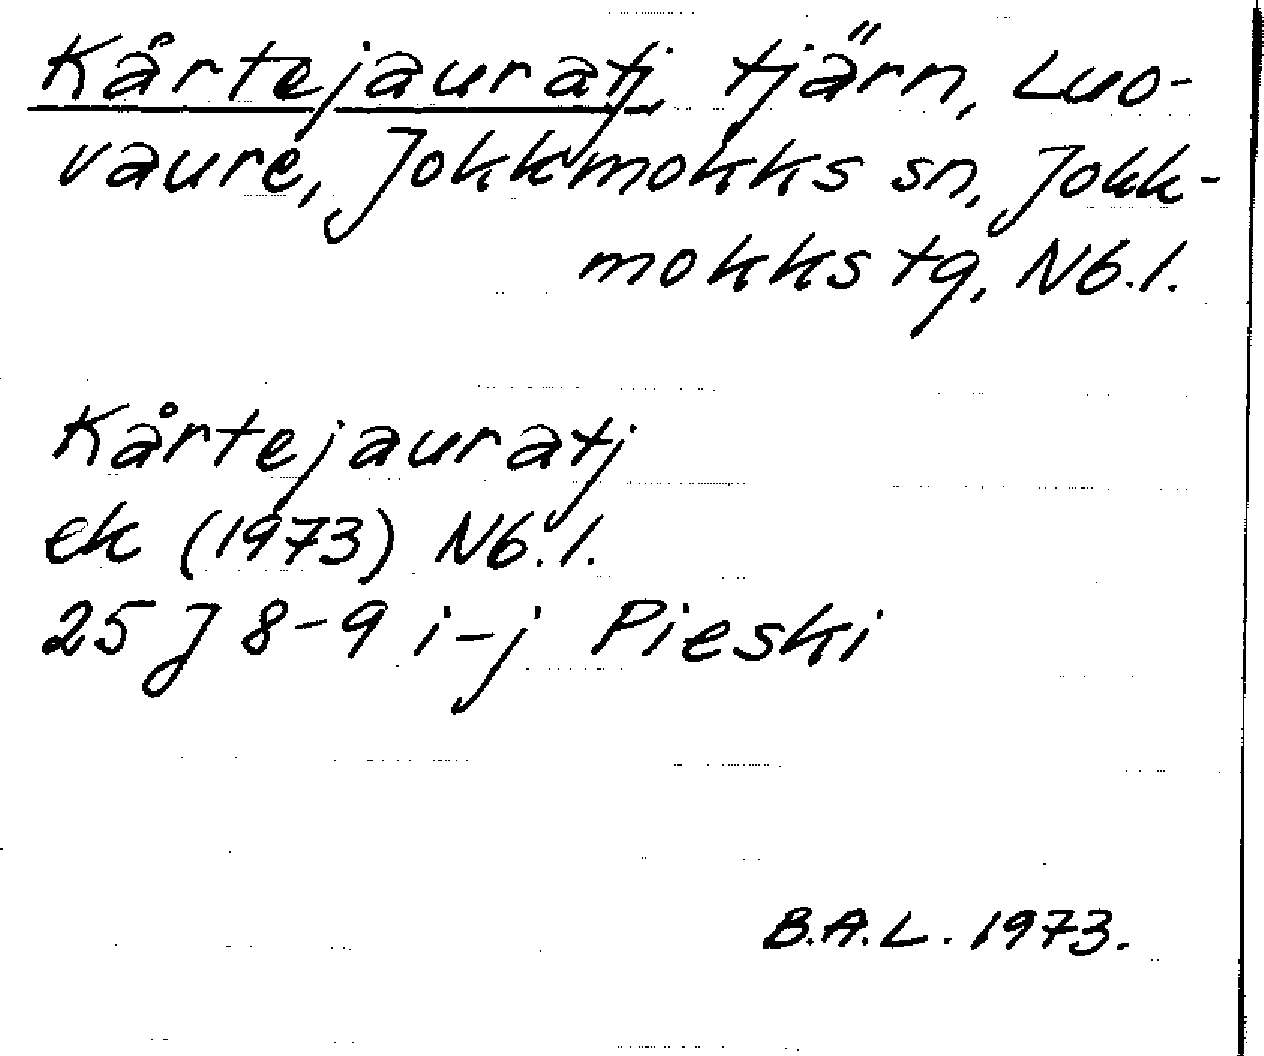 Kårtejauratj, tjärn, Luo-
vaure, Jokkmokks sn, Jokk-
mokks tg, Nb.l.
Kårtejauratj
ek (1973) Nb.l.
25 J 8-9 i-j Pieski
B.A.L. 1973.